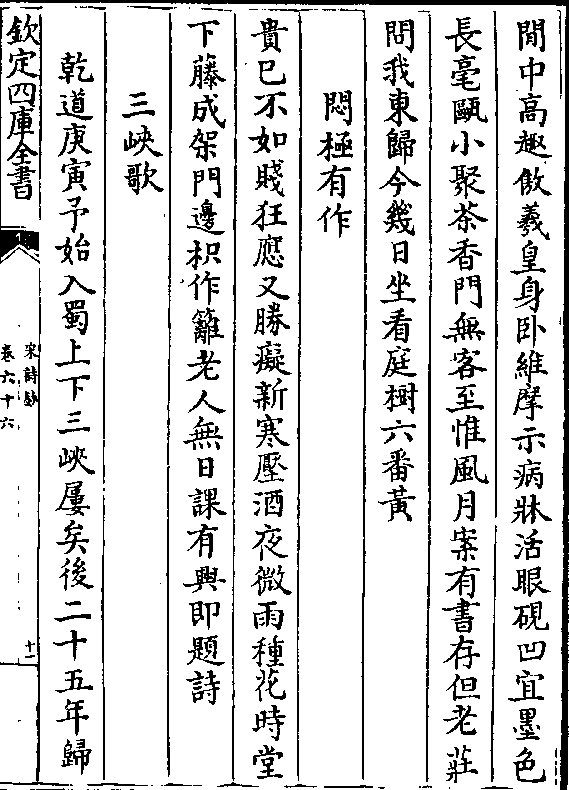 閒中高趣傲羲皇身卧維摩示病牀活眼硯凹宜墨色
長毫甌小聚茶香門無客至惟風月案有書存但老莊
問我東歸今幾日坐看庭樹六番黃
悶極有作
貴已不如賤狂應又勝癡新寒壓酒夜微雨種花時堂
下藤成架門邊枳作籬老人無日課有興即題詩
三峽歌
乾道庚寅予始入蜀上下三峽屢矣後二十五年歸
欽定四庫全書
宋詩鈔
卷六十六
十一